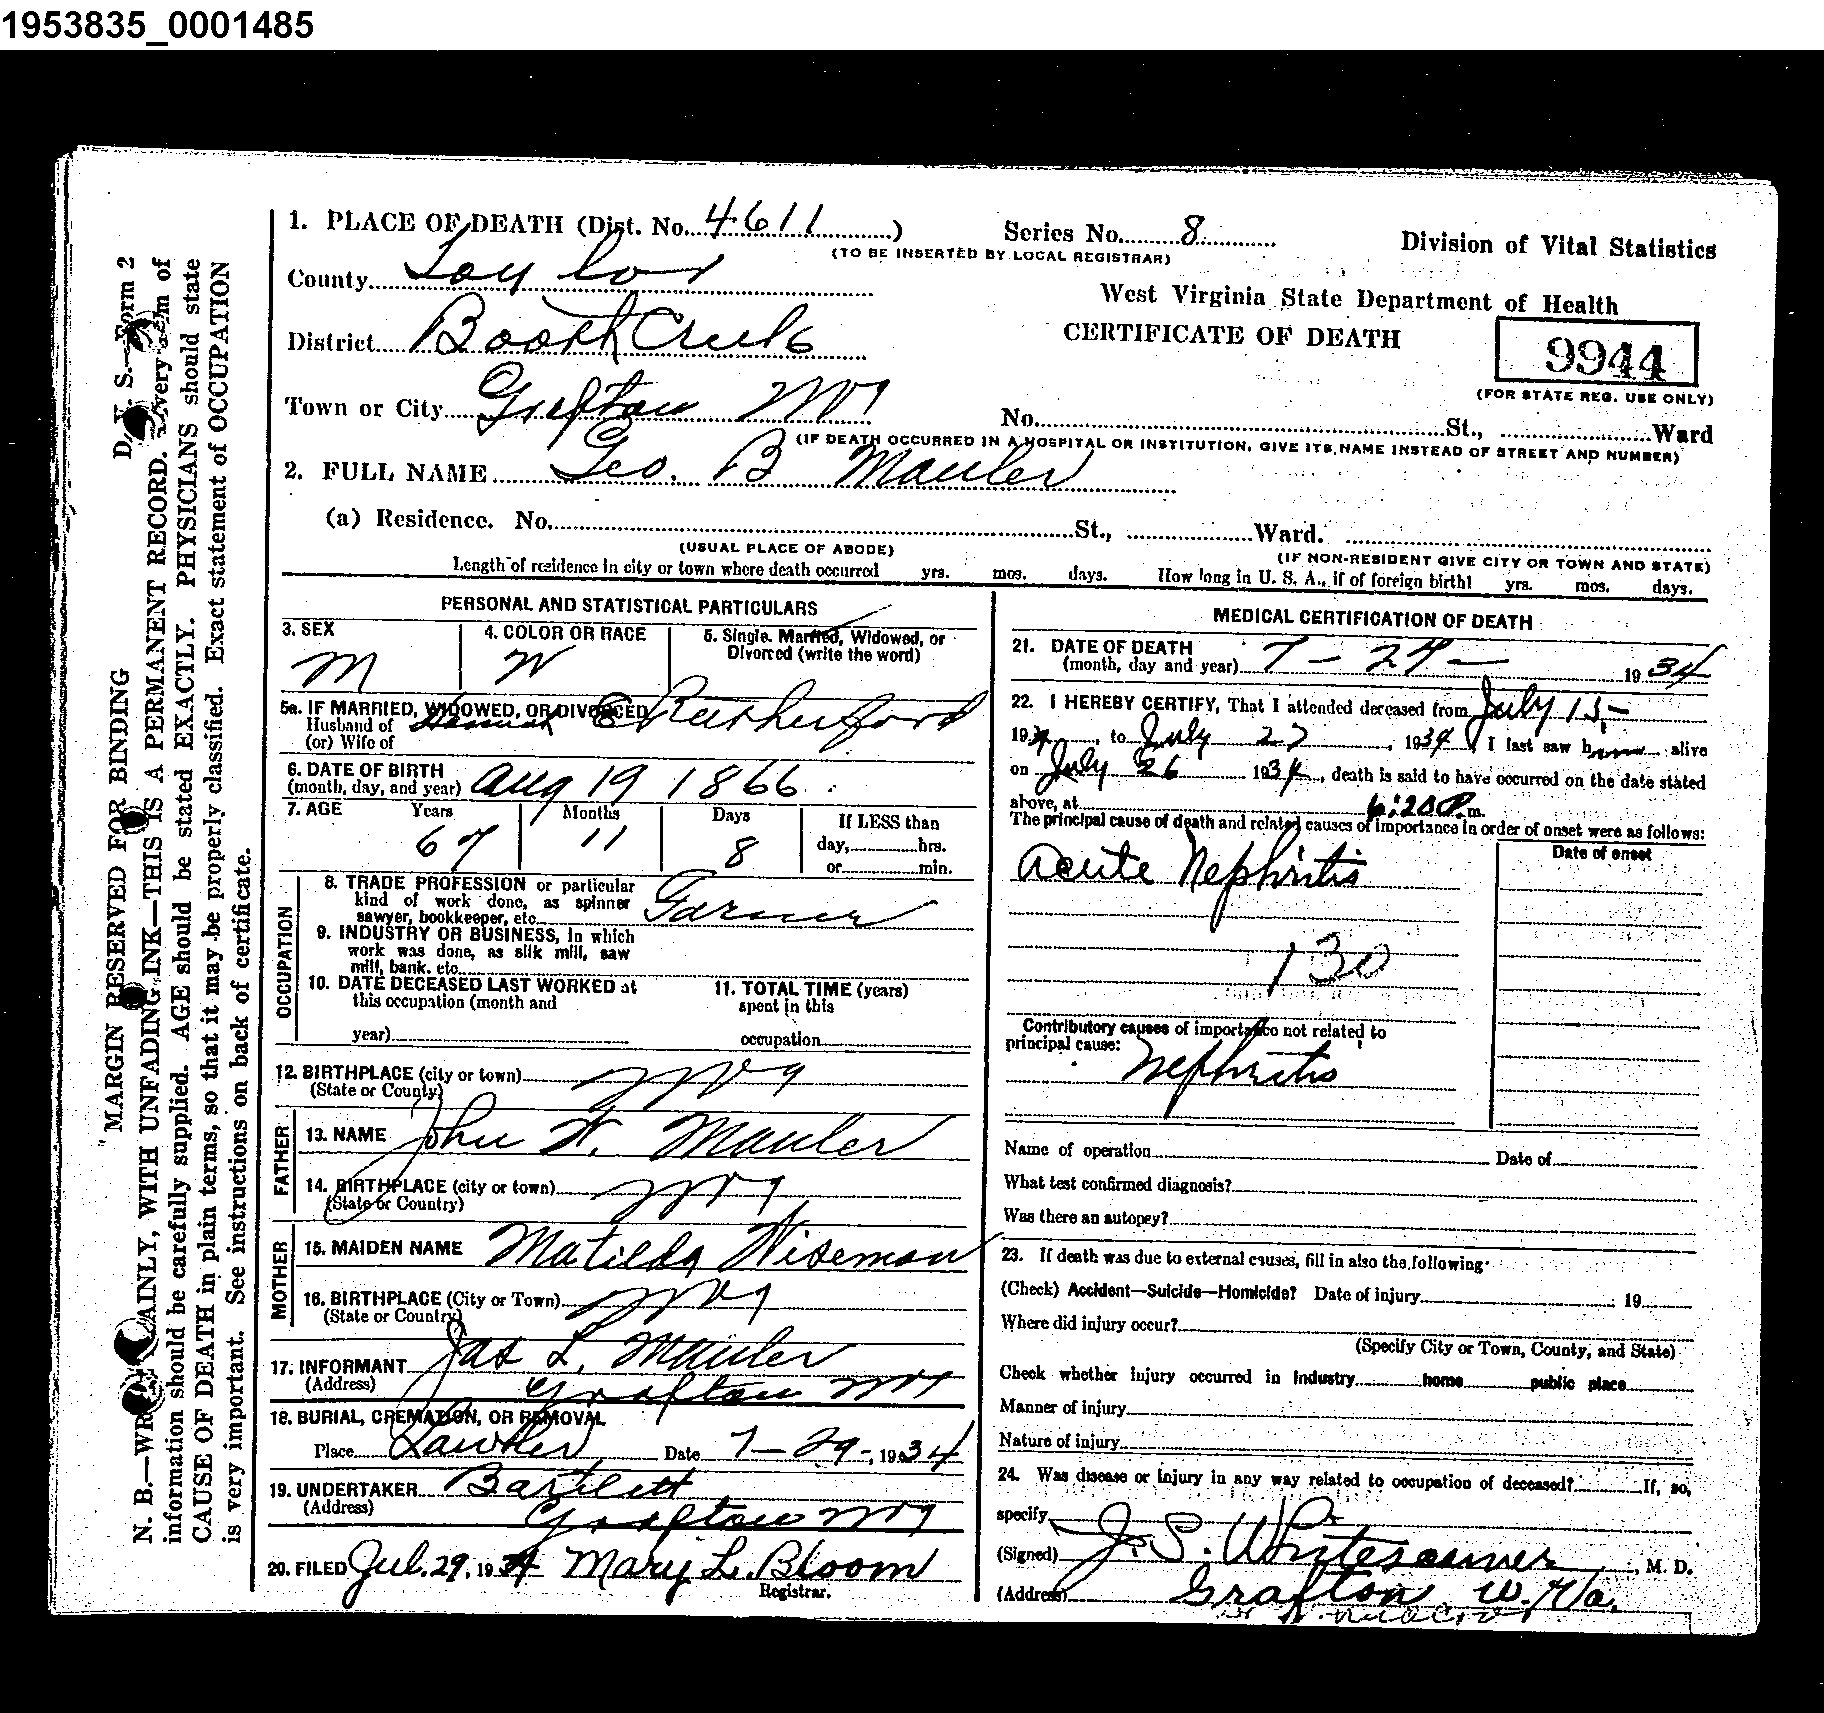 1953835_0001485
1. PLACE OF DEATH (Dist. No. 4611)
Series No. 8
(TO BE INSERTED BY LOCAL REGISTRAR)
Division of Vital Statistics
County Taylor
West Virginia State Department of Health
CERTIFICATE OF DEATH
9944
(FOR STATE REG. USE ONLY)
District Booth Creek
Town or City Grafton W Va
No. St., Ward
(IF DEATH OCCURRED IN A HOSPITAL OR INSTITUTION, GIVE ITS NAME INSTEAD OF STREET AND NUMBER)
2. FULL NAME Geo. B Mauler
(a) Residence. No. St., Ward.
(USUAL PLACE OF ABODE)
(IF NON-RESIDENT GIVE CITY OR TOWN AND STATE)
Length of residence in city or town where death occurred yrs. mos. days. How long in U. S. A., if of foreign birth? yrs. mos. days.
PERSONAL AND STATISTICAL PARTICULARS
3. SEX
M
4. COLOR OR RACE
W
5. Single. Married, Widowed, or
Divorced (write the word)
5a. IF MARRIED, WIDOWED, OR DIVORCED
Husband of
(or) Wife of
E Rutherford
6. DATE OF BIRTH
(month, day, and year) Aug 19 1866
7. AGE Years Months Days
67 11 8
If LESS than
day, hrs.
or min.
OCCUPATION
8. TRADE PROFESSION or particular
kind of work done, as spinner
sawyer, bookkeeper, etc. Farmer
9. INDUSTRY OR BUSINESS, in which
work was done, as silk mill, saw
mill, bank. etc.
10. DATE DECEASED LAST WORKED at
this occupation (month and
year)
11. TOTAL TIME (years)
spent in this
occupation
12. BIRTHPLACE (city or town) W Va
(State or County)
FATHER
13. NAME John W. Mauler
14. BIRTHPLACE (city or town) W Va
(State or Country)
MOTHER
15. MAIDEN NAME Matilda Wiseman
16. BIRTHPLACE (City or Town) W Va
(State or Country)
17. INFORMANT Jas L. Mauler
(Address) Grafton W Va
18. BURIAL, CREMATION, OR REMOVAL
Place Lawler Date 7-29-, 1934
19. UNDERTAKER Bartlett
(Address) Grafton W Va
20. FILED Jul. 29, 1934 Mary L. Bloom
Registrar.
MEDICAL CERTIFICATION OF DEATH
21. DATE OF DEATH
(month, day and year) 7-27- 1934
22. I HEREBY CERTIFY, That I attended deceased from July 15,-
1934, to July 27, 1934, I last saw him alive
on July 26 1934, death is said to have occurred on the date stated
above, at 6:20 P.m.
The principal cause of death and related causes of importance in order of onset were as follows:
Date of onset
Acute Nephritis
130
Contributory causes of importance not related to
principal cause:
Nephritis
Name of operation Date of
What test confirmed diagnosis?
Was there an autopsy?
23. If death was due to external causes, fill in also the following:
(Check) Accident—Suicide—Homicide? Date of injury 19
Where did injury occur?
(Specify City or Town, County, and State)
Check whether injury occurred in industry home public place
Manner of injury
Nature of injury
24. Was disease or injury in any way related to occupation of deceased? If, so,
specify
(Signed) J. S. Whitescarver, M. D.
(Address) Grafton W. Va.
D. V. S.—Form 2
MARGIN RESERVED FOR BINDING
N. B.—WRITE PLAINLY, WITH UNFADING INK—THIS IS A PERMANENT RECORD. Every item of
information should be carefully supplied. AGE should be stated EXACTLY. PHYSICIANS should state
CAUSE OF DEATH in plain terms, so that it may be properly classified. Exact statement of OCCUPATION
is very important. See instructions on back of certificate.